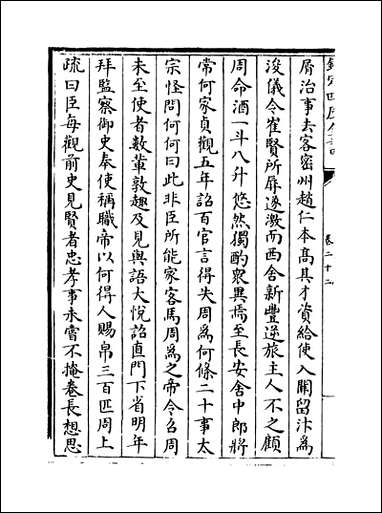 欽定四庫全書
卷二十三
屑治事去客密州趙仁本高其才資給使入關留汴為
浚儀令崔賢所辱遂激而西舍新豐逆旅主人不之顧
周命酒一斗八升悠然獨酌衆異焉至長安舍中郎將
常何家貞觀五年詔百官言得失周為何條二十事太
宗怪問何何曰此非臣所能家客馬周為之帝令召周
未至使者數輩敦趣及見與語大悅詔直門下省明年
拜監察御史奉使稱職帝以何得人賜帛三百匹周上
疏曰臣每觀前史見賢者忠孝事未嘗不掩卷長想思